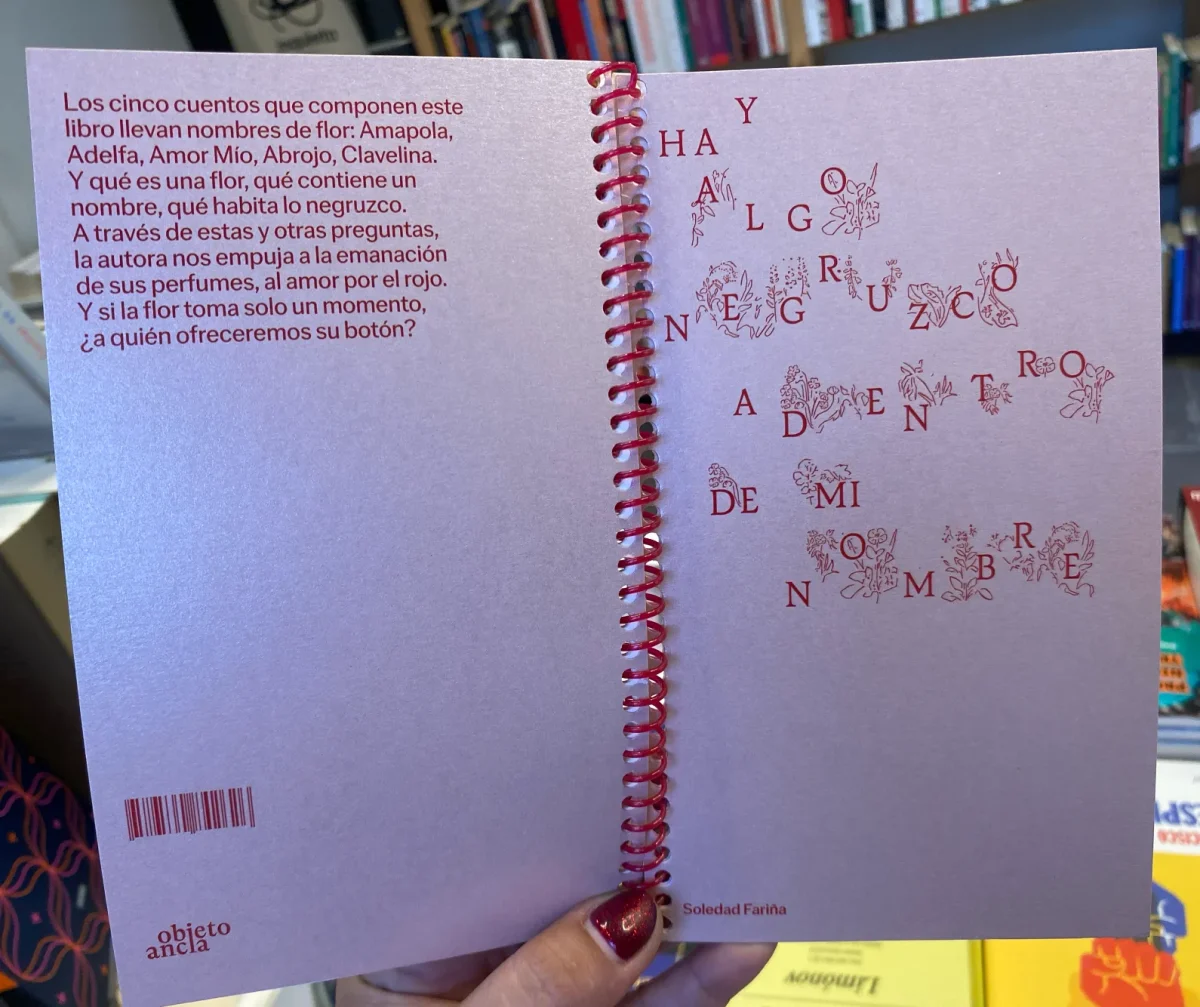 Los cinco cuentos que componen este
libro llevan nombres de flor: Amapola,
Adelfa, Amor Mío, Abrojo, Clavelina.
Y qué es una flor, qué contiene un
nombre, qué habita lo negruzco.
A través de estas y otras preguntas,
la autora nos empuja a la emanación
de sus perfumes, al amor por el rojo.
Y si la flor toma solo un momento,
¿a quién ofreceremos su botón?
objeto
ancla
HAY
ALGO
NEGRUZCO
ADENTRO
DE MI
NOMBRE
Soledad Fariña
Limónov